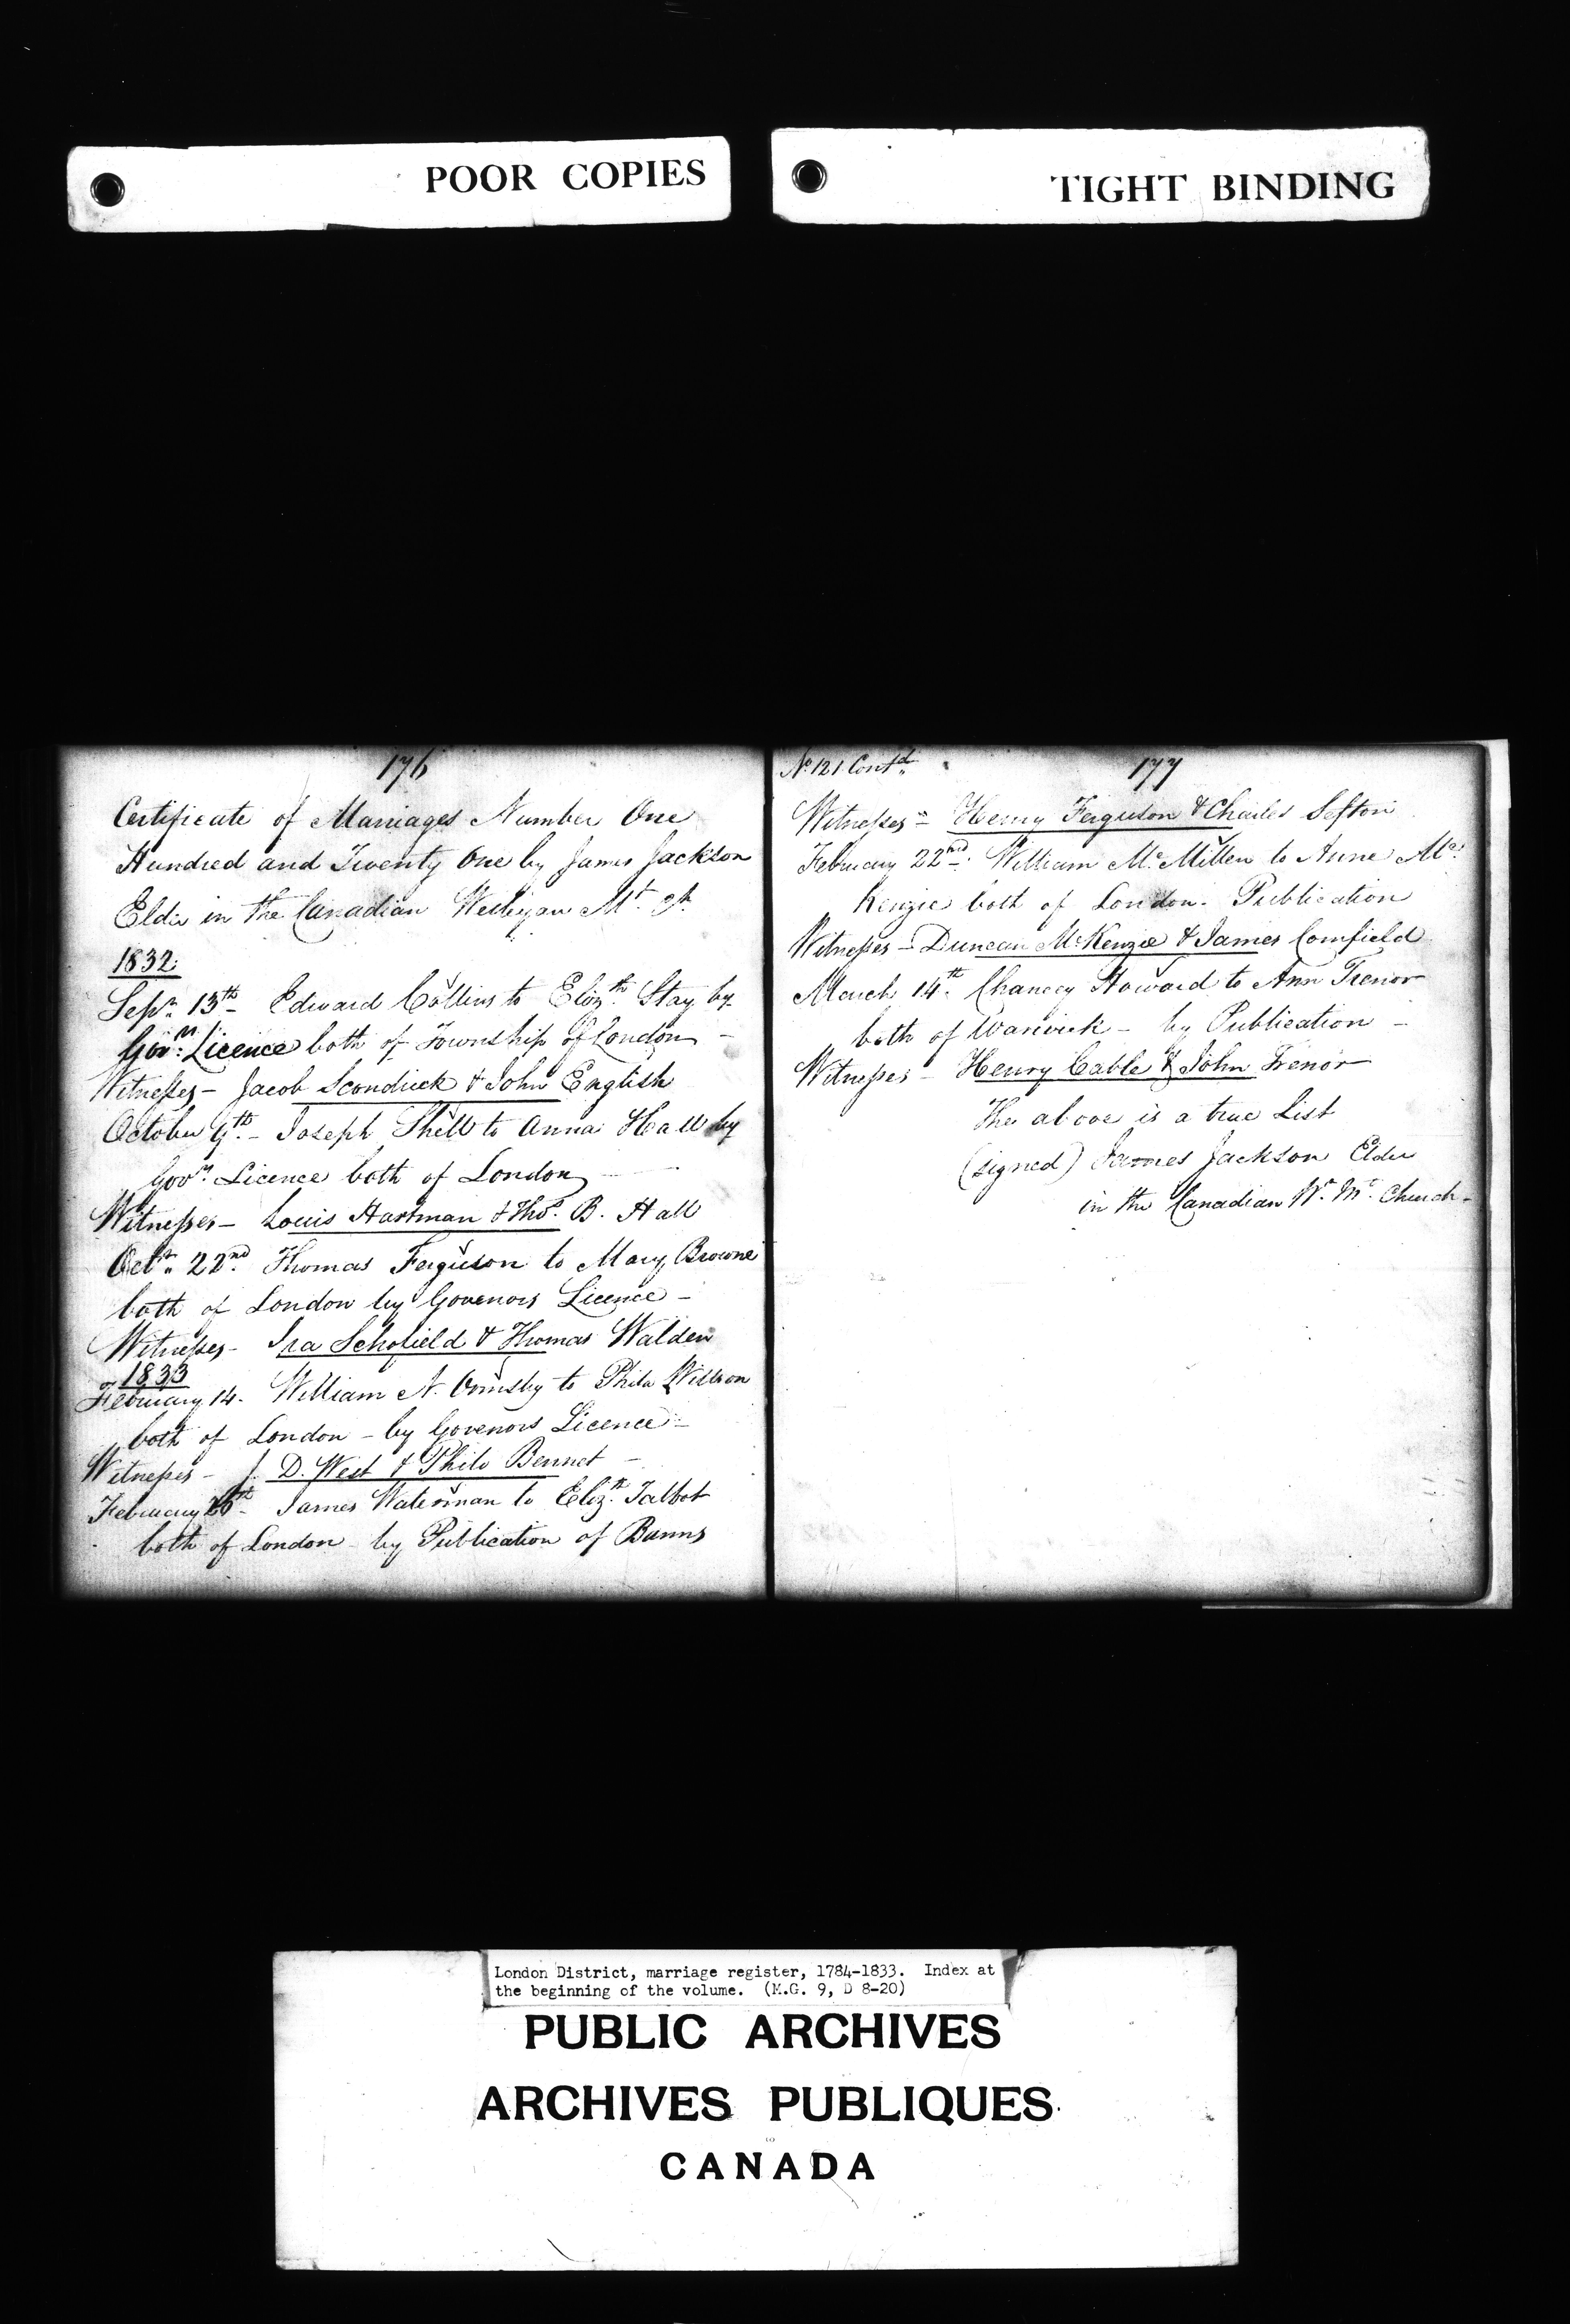 POOR COPIES
TIGHT BINDING
176
Certificate of Marriages Number One
Hundred and Twenty One by James Jackson
Elder in the Canadian Wesleyan Mt. Ch
1832
Sepr. 13th - Edward Collins to Elizth. Stay by
Govr. Licence both of Township of London -
Witnesses - Jacob Scondrick & John English
October 9th. - Joseph Shell to Anna Hall by
Govr. Licence both of London
Witnesses - Louis Hartman & Thos. B. Hall
Octr. 22nd. Thomas Ferguson to Mary Browne
both of London by Govenors Licence -
Witnesses - Ira Schofield & Thomas Walden
1833
February 14. William N. Ormsby to Phila Willson
both of London - by Govenors Licence -
Witnesses - J. D. West & Philo Bennet -
February th - James Waterman to Elizth. Talbot
both of London by Publication of Banns
No. 121 Contd.
177
Witnesses - Henry Ferguson & Charles Sefton
February 22nd. William Mc.Millen to Anne Mc.
Kenzie both of London. Publication
Witnesses - Duncan McKenzie & James Cornfield
March 14th. Chancey Howard to Ann Trenor
both of Warwick - by Publication -
Witnesses - Henry Cable & John Trenor
The above is a true List
(signed) James Jackson Elder
in the Canadian Wn. Mt. Church -
London District, marriage register, 1784-1833. Index at
the beginning of the volume. (M.G. 9, D 8-20)
PUBLIC ARCHIVES
ARCHIVES PUBLIQUES
CANADA